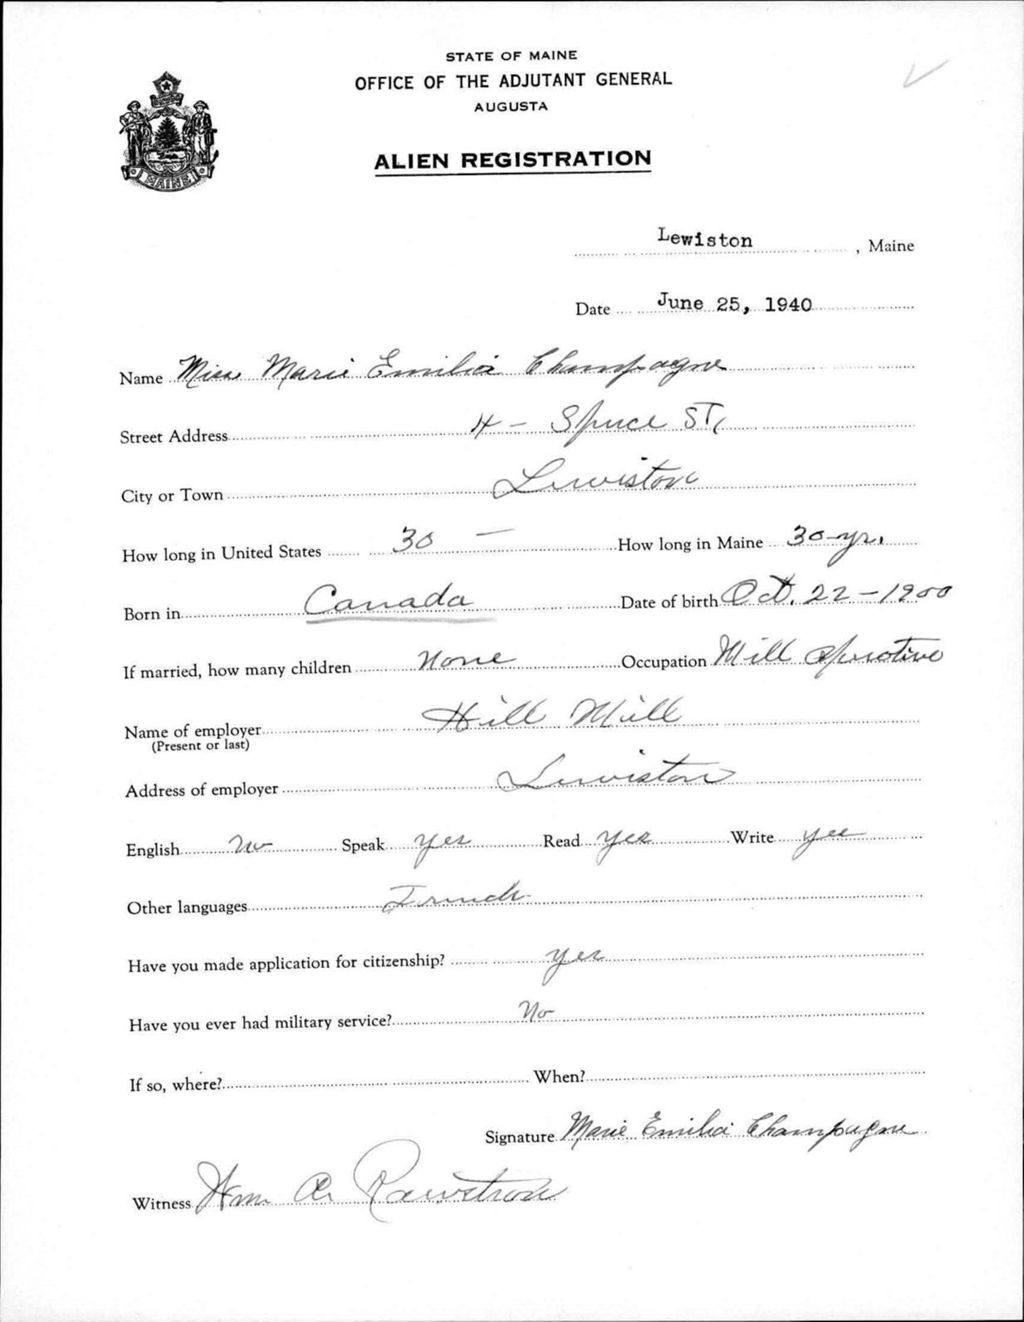 STATE OF MAINE
OFFICE OF THE ADJUTANT GENERAL
AUGUSTA
MAINE
ALIEN REGISTRATION
Lewiston, Maine
Date June 25, 1940
Name Miss Marie Emilia Champagne
Street Address 4 - Spruce ST,
City or Town Lewiston
How long in United States 30 - How long in Maine 30 yr.
Born in Canada Date of birth Oct. 22 - 1900
If married, how many children None Occupation Mill Operative
Name of employer Hill Mill
(Present or last)
Address of employer Lewiston
English No Speak yes Read yes Write yes
Other languages French
Have you made application for citizenship? yes
Have you ever had military service? No
If so, where? When?
Signature Marie Emilia Champagne
Witness Wm A. Rawstron